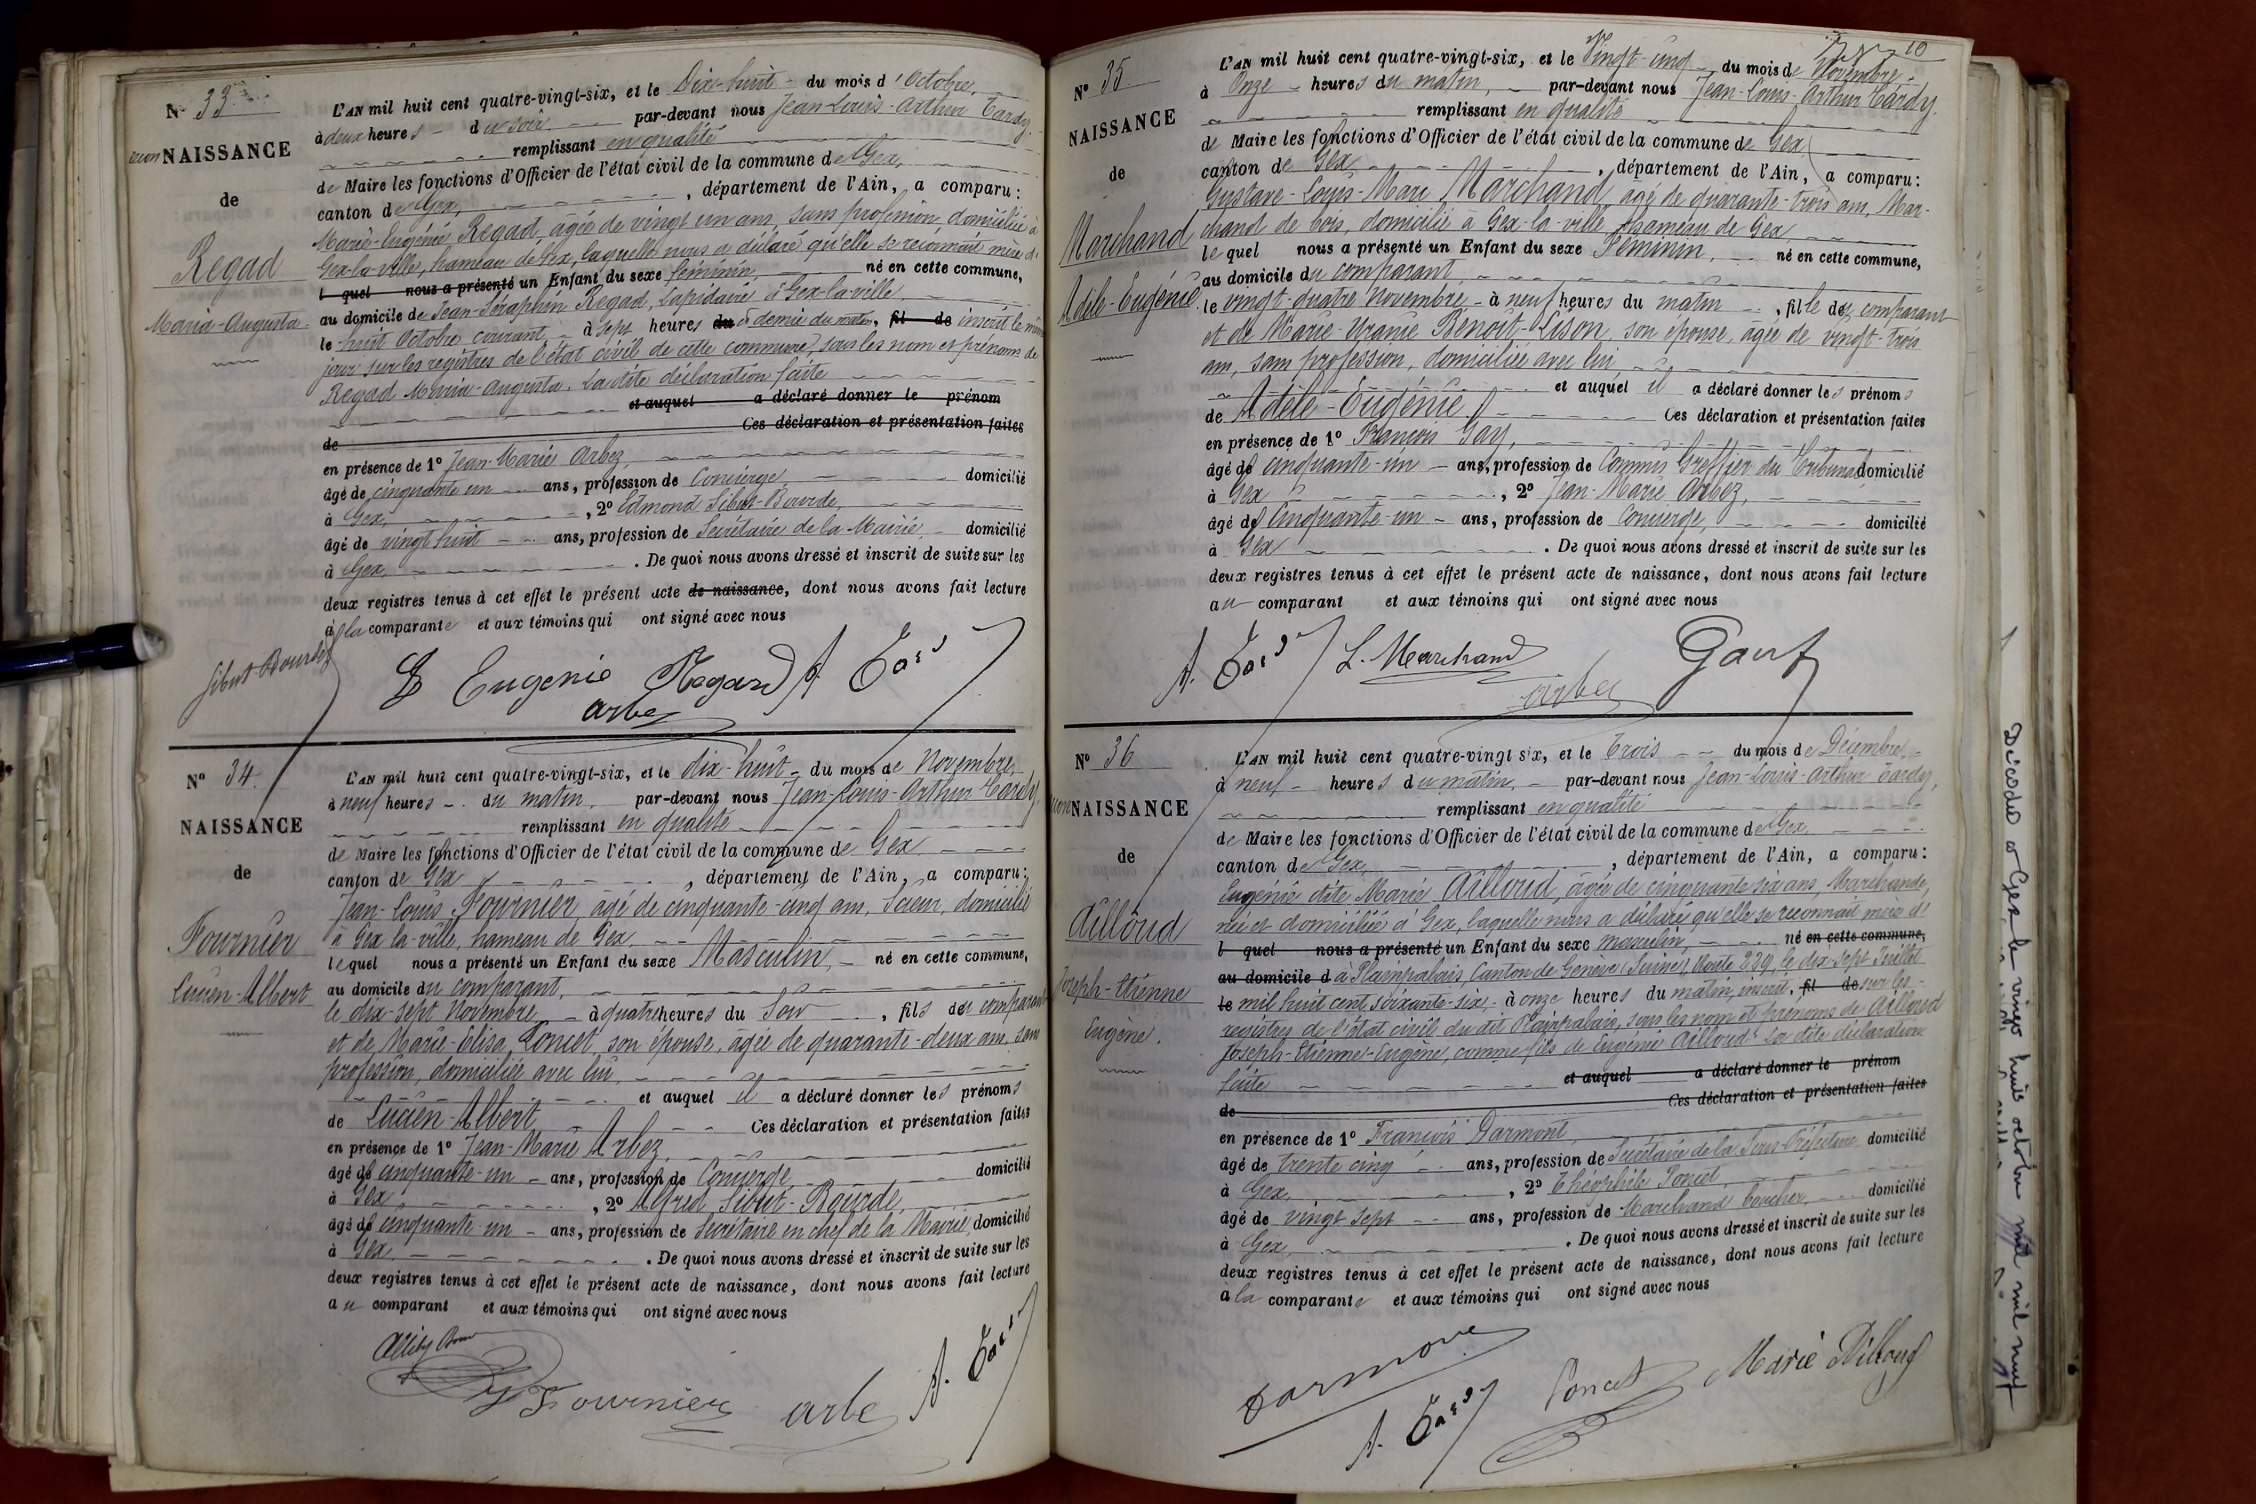 N° 33
NAISSANCE
de
Regad
Maria-Augusta.
L'AN mil huit cent quatre-vingt-six, et le Dix-huit du mois d'Octobre,
à deux heures du soir par-devant nous Jean-Louis-Arthur Tardy,
remplissant en qualité
de Maire les fonctions d'Officier de l'état civil de la commune de Gex,
canton de Gex, département de l'Ain, a comparu :
Marie-Eugénie Regad, âgée de vingt un ans, sans profession, domiciliée à
Gex-la-ville, hameau de Gex, laquelle nous a déclaré qu'elle se reconnait mère d'
l quel nous a présenté un Enfant du sexe féminin, né en cette commune,
au domicile de Jean-Séraphin Regad, Lapidaire à Gex-la-ville,
le huit Octobre courant, à sept heures du & demie du matin, fil de inscrit le même
jour, sur les registres de l'état civil de cette commune, sous les nom et prénoms de
Regad Maria-Augusta. La dite déclaration faite
et auquel a déclaré donner le prénom
de Ces déclaration et présentation faites
en présence de 1° Jean-Marie Arbez,
âgé de cinquante un ans, profession de Concierge, domicilié
à Gex, , 2° Edmond Sibut-Bourde,
âgé de vingt huit ans, profession de Secrétaire de la Mairie, domicilié
à Gex. . De quoi nous avons dressé et inscrit de suite sur les
deux registres tenus à cet effet le présent acte de naissance, dont nous avons fait lecture
à la comparante et aux témoins qui ont signé avec nous
Sibut-Bourde Eugenie Regad A. Tardy
arbez
N° 34.
NAISSANCE
de
Fournier
Lucien-Albert
L'AN mil huit cent quatre-vingt-six, et le dix-huit du mois de Novembre,
à neuf heures du matin, par-devant nous Jean-Louis-Arthur Tardy
remplissant en qualité
de Maire les fonctions d'Officier de l'état civil de la commune de Gex
canton de Gex, département de l'Ain, a comparu :
Jean-Louis Fournier, âgé de cinquante-cinq ans, Scieur, domicilié
à Gex la-ville, hameau de Gex,
lequel nous a présenté un Enfant du sexe Masculin, né en cette commune,
au domicile du comparant,
le dix-sept Novembre à quatre heures du Soir, fils du comparant
et de Marie-Elisa Poncet, son épouse, âgée de quarante-deux ans, sans
profession, domiciliée avec lui,
et auquel il a déclaré donner les prénoms
de Lucien-Albert, Ces déclaration et présentation faites
en présence de 1° Jean-Marie Arbez,
âgé de cinquante-un ans, profession de Concierge, domicilié
à Gex, 2° Alfred Sibut-Bourde,
âgé de cinquante-un ans, profession de Secrétaire en chef de la Mairie, domicilié
à Gex . De quoi nous avons dressé et inscrit de suite sur les
deux registres tenus à cet effet le présent acte de naissance, dont nous avons fait lecture
au comparant et aux témoins qui ont signé avec nous
Fournier arbez A. Tardy
10
N° 35
NAISSANCE
de
Marchand
Adèle-Eugénie.
L'AN mil huit cent quatre-vingt-six, et le Vingt-cinq du mois de Novembre,
à Onze heures du matin, par-devant nous Jean-Louis-Arthur Tardy,
remplissant en qualité
de Maire les fonctions d'Officier de l'état civil de la commune de Gex,
canton de Gex, département de l'Ain, a comparu :
Gustave-Louis-Marc Marchand, âgé de quarante-trois ans, Mar-
chand de bois, domicilié à Gex-la-ville, hameau de Gex,
lequel nous a présenté un Enfant du sexe Féminin, né en cette commune,
au domicile du comparant,
le vingt-quatre Novembre, à neuf heures du matin, fille du comparant
et de Marie-Uranie Benoit-Lison, son épouse, âgée de vingt-trois
ans, sans profession, domiciliée avec lui
et auquel il a déclaré donner les prénoms
de Adèle-Eugénie. Ces déclaration et présentation faites
en présence de 1° François Gay,
âgé de cinquante-un ans, profession de Commis Greffier du Tribunal domicilié
à Gex, 2° Jean-Marie Arbez,
âgé de Cinquante-un ans, profession de Concierge, domicilié
à Gex . De quoi nous avons dressé et inscrit de suite sur les
deux registres tenus à cet effet le présent acte de naissance, dont nous avons fait lecture
au comparant et aux témoins qui ont signé avec nous
A. Tardy L. Marchand arbez Gay
N° 36
NAISSANCE
de
Ailloud
Joseph-Etienne
Eugène.
L'AN mil huit cent quatre-vingt six, et le Trois du mois de Décembre,
à neuf heures du matin, par-devant nous Jean-Louis-Arthur Tardy,
remplissant en qualité
de Maire les fonctions d'Officier de l'état civil de la commune de Gex
canton de Gex, département de l'Ain, a comparu :
Eugénie dite Marie Ailloud, âgée de cinquante six ans, Marchande,
née et domiciliée à Gex, laquelle nous a déclaré qu'elle se reconnait mère d'
l quel nous a présenté un Enfant du sexe masculin, né en cette commune,
au domicile d à Plainpalais, Canton de Genève (Suisse) Route 239, le dix-sept Juillet
le mil huit cent soixante-six, à onze heures du matin, inscrit, fil de sur les
registres de l'état civil du dit Plainpalais, sous les nom et prénoms de Ailloud
Joseph-Etienne-Eugène, comme fils de Eugénie Ailloud. La dite déclaration
faite et auquel a déclaré donner le prénom
de Ces déclaration et présentation faites
en présence de 1° François Darmont,
âgé de trente cinq ans, profession de Secrétaire de la Sous-Préfecture domicilié
à Gex, 2° Théophile Poncet,
âgé de vingt sept ans, profession de Marchand boucher, domicilié
à Gex, . De quoi nous avons dressé et inscrit de suite sur les
deux registres tenus à cet effet le présent acte de naissance, dont nous avons fait lecture
à la comparante et aux témoins qui ont signé avec nous
Darmont A. Tardy Poncet Marie Ailloud
Décédé à Gex le vingt huit octobre mil neuf